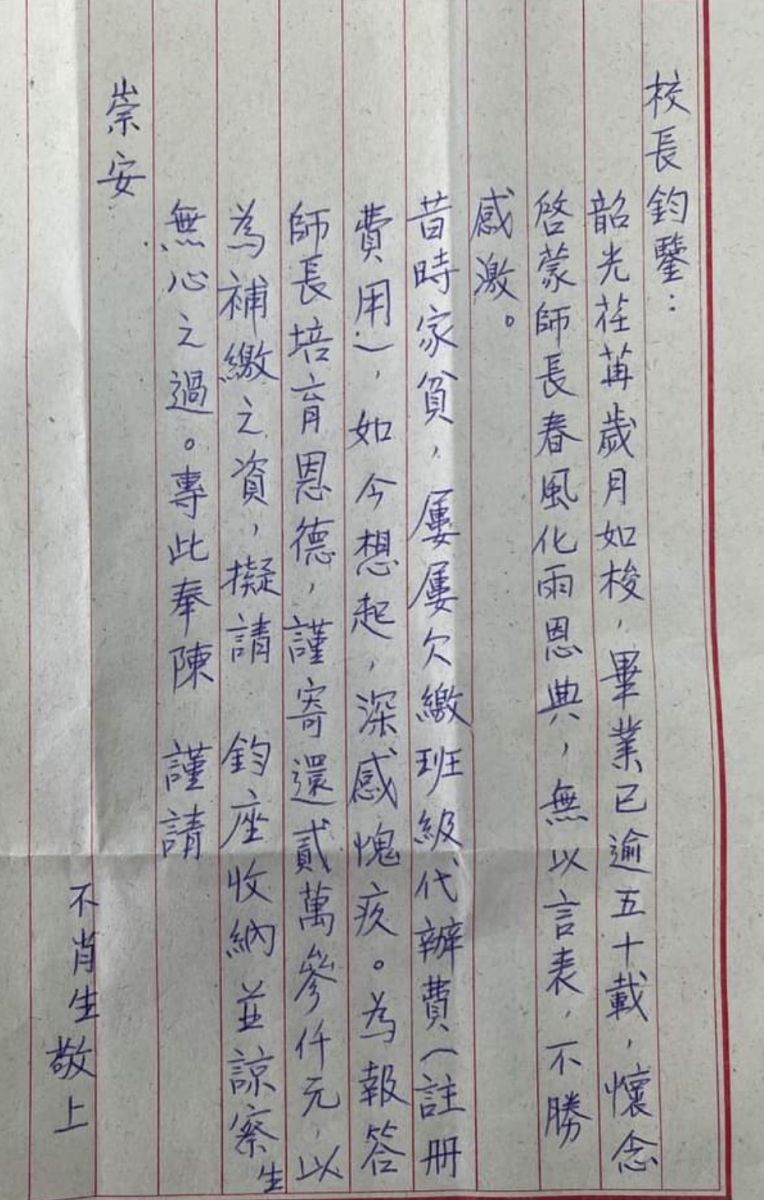 校長鈞鑒：
韶光荏苒歲月如梭，畢業已逾五十載，懷念
啓蒙師長春風化雨恩典，無以言表，不勝
感激。
昔時家貧，屢屢欠繳班級代辦費（註冊
費用），如今想起，深感愧疚。為報答
師長培育恩德，謹寄還貳萬參仟元，以
為補繳之資，擬請　鈞座收納並諒察生
無心之過。專此奉陳　謹請
崇安
不肖生敬上